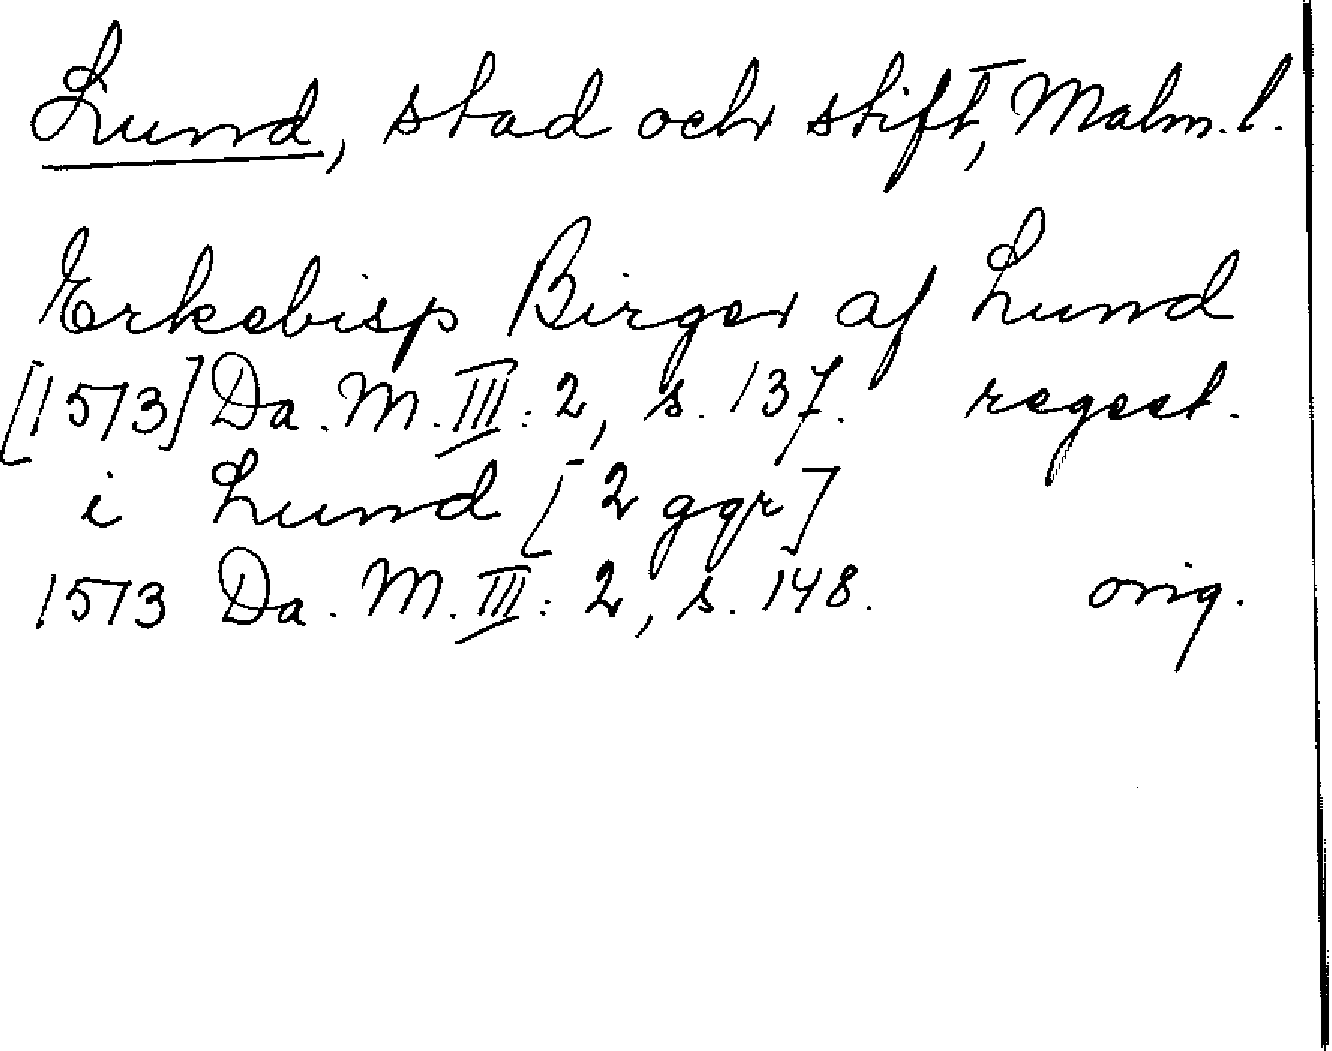 Lund, stad och stift, Malm. l.
Erkebisp Birger af Lund
[1573] Da. M. III: 2, s. 137. regest.
i Lund [2 ggr]
1573 Da. M. III: 2, s. 148. orig.